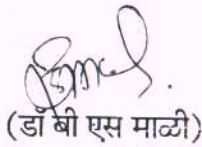 (डॉ बी एस माळी)